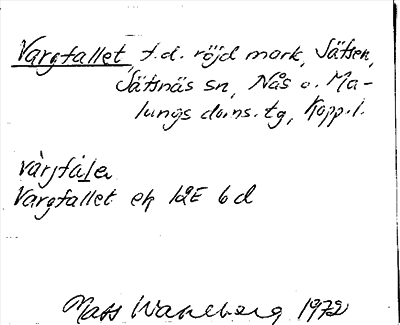 Vargfallet, f.d. röjd mark, Sätsen,
Säfsnäs sn, Nås o. Ma-
lungs doms. tg, Kopp. l.
vàrjfàle
Vargfallet ek 12E 6d
Mats Wahlberg 1972